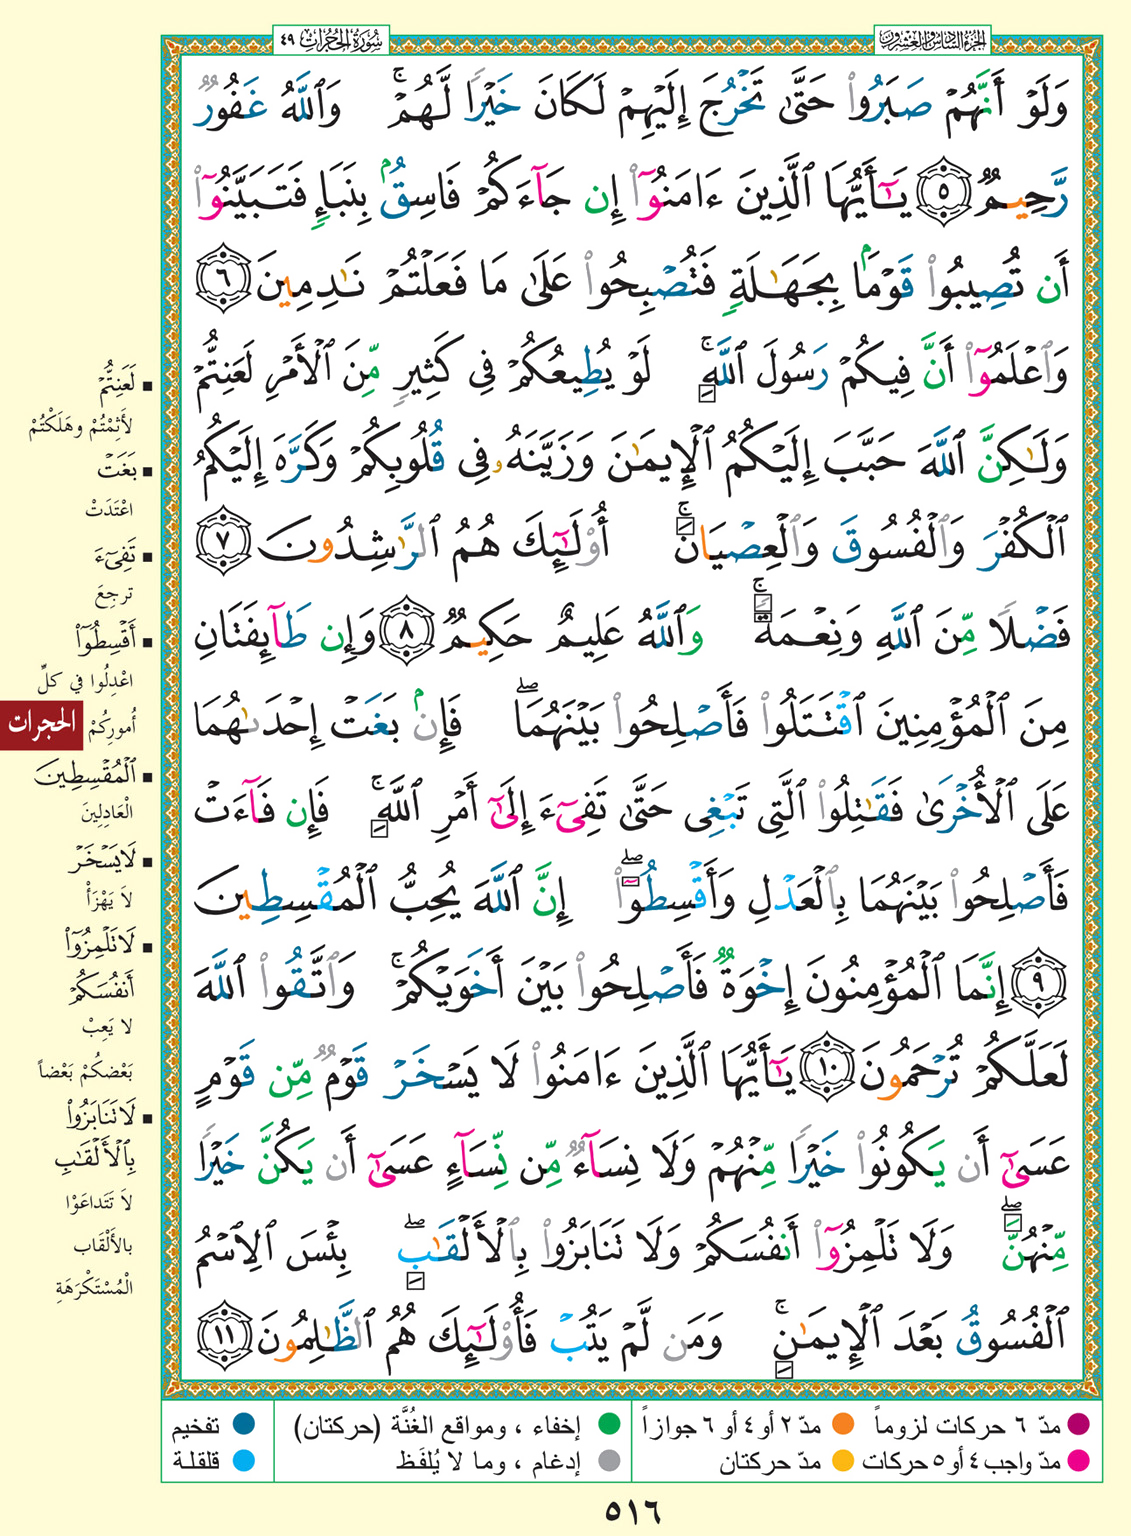 الجزء السادس والعشرون
سورة الحجرات ٤٩
وَلَوْ أَنَّهُمْ صَبَرُوا۟ حَتَّىٰ تَخْرُجَ إِلَيْهِمْ لَكَانَ خَيْرًا لَّهُمْ ۚ وَٱللَّهُ غَفُورٌ
رَّحِيمٌ ٥ يَـٰٓأَيُّهَا ٱلَّذِينَ ءَامَنُوٓا۟ إِن جَآءَكُمْ فَاسِقُۢ بِنَبَإٍ فَتَبَيَّنُوٓا۟
أَن تُصِيبُوا۟ قَوْمًۢا بِجَهَـٰلَةٍ فَتُصْبِحُوا۟ عَلَىٰ مَا فَعَلْتُمْ نَـٰدِمِينَ ٦
وَٱعْلَمُوٓا۟ أَنَّ فِيكُمْ رَسُولَ ٱللَّهِ ۚ لَوْ يُطِيعُكُمْ فِى كَثِيرٍ مِّنَ ٱلْأَمْرِ لَعَنِتُّمْ
وَلَـٰكِنَّ ٱللَّهَ حَبَّبَ إِلَيْكُمُ ٱلْإِيمَـٰنَ وَزَيَّنَهُۥ فِى قُلُوبِكُمْ وَكَرَّهَ إِلَيْكُمُ
ٱلْكُفْرَ وَٱلْفُسُوقَ وَٱلْعِصْيَانَ ۚ أُو۟لَـٰٓئِكَ هُمُ ٱلرَّٰشِدُونَ ٧
فَضْلًا مِّنَ ٱللَّهِ وَنِعْمَةً ۚ وَٱللَّهُ عَلِيمٌ حَكِيمٌ ٨ وَإِن طَآئِفَتَانِ
مِنَ ٱلْمُؤْمِنِينَ ٱقْتَتَلُوا۟ فَأَصْلِحُوا۟ بَيْنَهُمَا ۖ فَإِنۢ بَغَتْ إِحْدَىٰهُمَا
عَلَى ٱلْأُخْرَىٰ فَقَـٰتِلُوا۟ ٱلَّتِى تَبْغِى حَتَّىٰ تَفِىٓءَ إِلَىٰٓ أَمْرِ ٱللَّهِ ۚ فَإِن فَآءَتْ
فَأَصْلِحُوا۟ بَيْنَهُمَا بِٱلْعَدْلِ وَأَقْسِطُوٓا۟ ۖ إِنَّ ٱللَّهَ يُحِبُّ ٱلْمُقْسِطِينَ
٩ إِنَّمَا ٱلْمُؤْمِنُونَ إِخْوَةٌ فَأَصْلِحُوا۟ بَيْنَ أَخَوَيْكُمْ ۚ وَٱتَّقُوا۟ ٱللَّهَ
لَعَلَّكُمْ تُرْحَمُونَ ١٠ يَـٰٓأَيُّهَا ٱلَّذِينَ ءَامَنُوا۟ لَا يَسْخَرْ قَوْمٌ مِّن قَوْمٍ
عَسَىٰٓ أَن يَكُونُوا۟ خَيْرًا مِّنْهُمْ وَلَا نِسَآءٌ مِّن نِّسَآءٍ عَسَىٰٓ أَن يَكُنَّ خَيْرًا
مِّنْهُنَّ ۖ وَلَا تَلْمِزُوٓا۟ أَنفُسَكُمْ وَلَا تَنَابَزُوا۟ بِٱلْأَلْقَـٰبِ ۖ بِئْسَ ٱلِٱسْمُ
ٱلْفُسُوقُ بَعْدَ ٱلْإِيمَـٰنِ ۚ وَمَن لَّمْ يَتُبْ فَأُو۟لَـٰٓئِكَ هُمُ ٱلظَّـٰلِمُونَ ١١
■ لَعَنِتُّمْ
لَأَثِمْتُمْ وهَلَكْتُمْ
■ بَغَتْ
اعْتَدَتْ
■ تَفِىٓءَ
ترجِعَ
■ أَقْسِطُوٓا۟
اعْدِلُوا في كلِّ
أُمورِكُمْ
الحجرات
■ ٱلْمُقْسِطِينَ
الْعَادِلِينَ
■ لَا يَسْخَرْ
لاَ يَهْزَأْ
■ لَا تَلْمِزُوٓا۟
أَنفُسَكُمْ
لا يَعِبْ
بَعْضكُمْ بَعْضاً
■ لَا تَنَابَزُوا۟
بِٱلْأَلْقَـٰبِ
لاَ تَتَداعَوْا
بالأَلْقَاب
الْمُسْتَكْرَهَةِ
مدّ ٦ حركات لزوماً مدّ ٢ أو ٤ أو ٦ جوازاً إخفاء ، ومواقع الغُنَّة (حركتان) تفخيم
مدّ واجب ٤ أو ٥ حركات مدّ حركتان إدغام ، وما لا يُلفَظ قلقلة
٥١٦